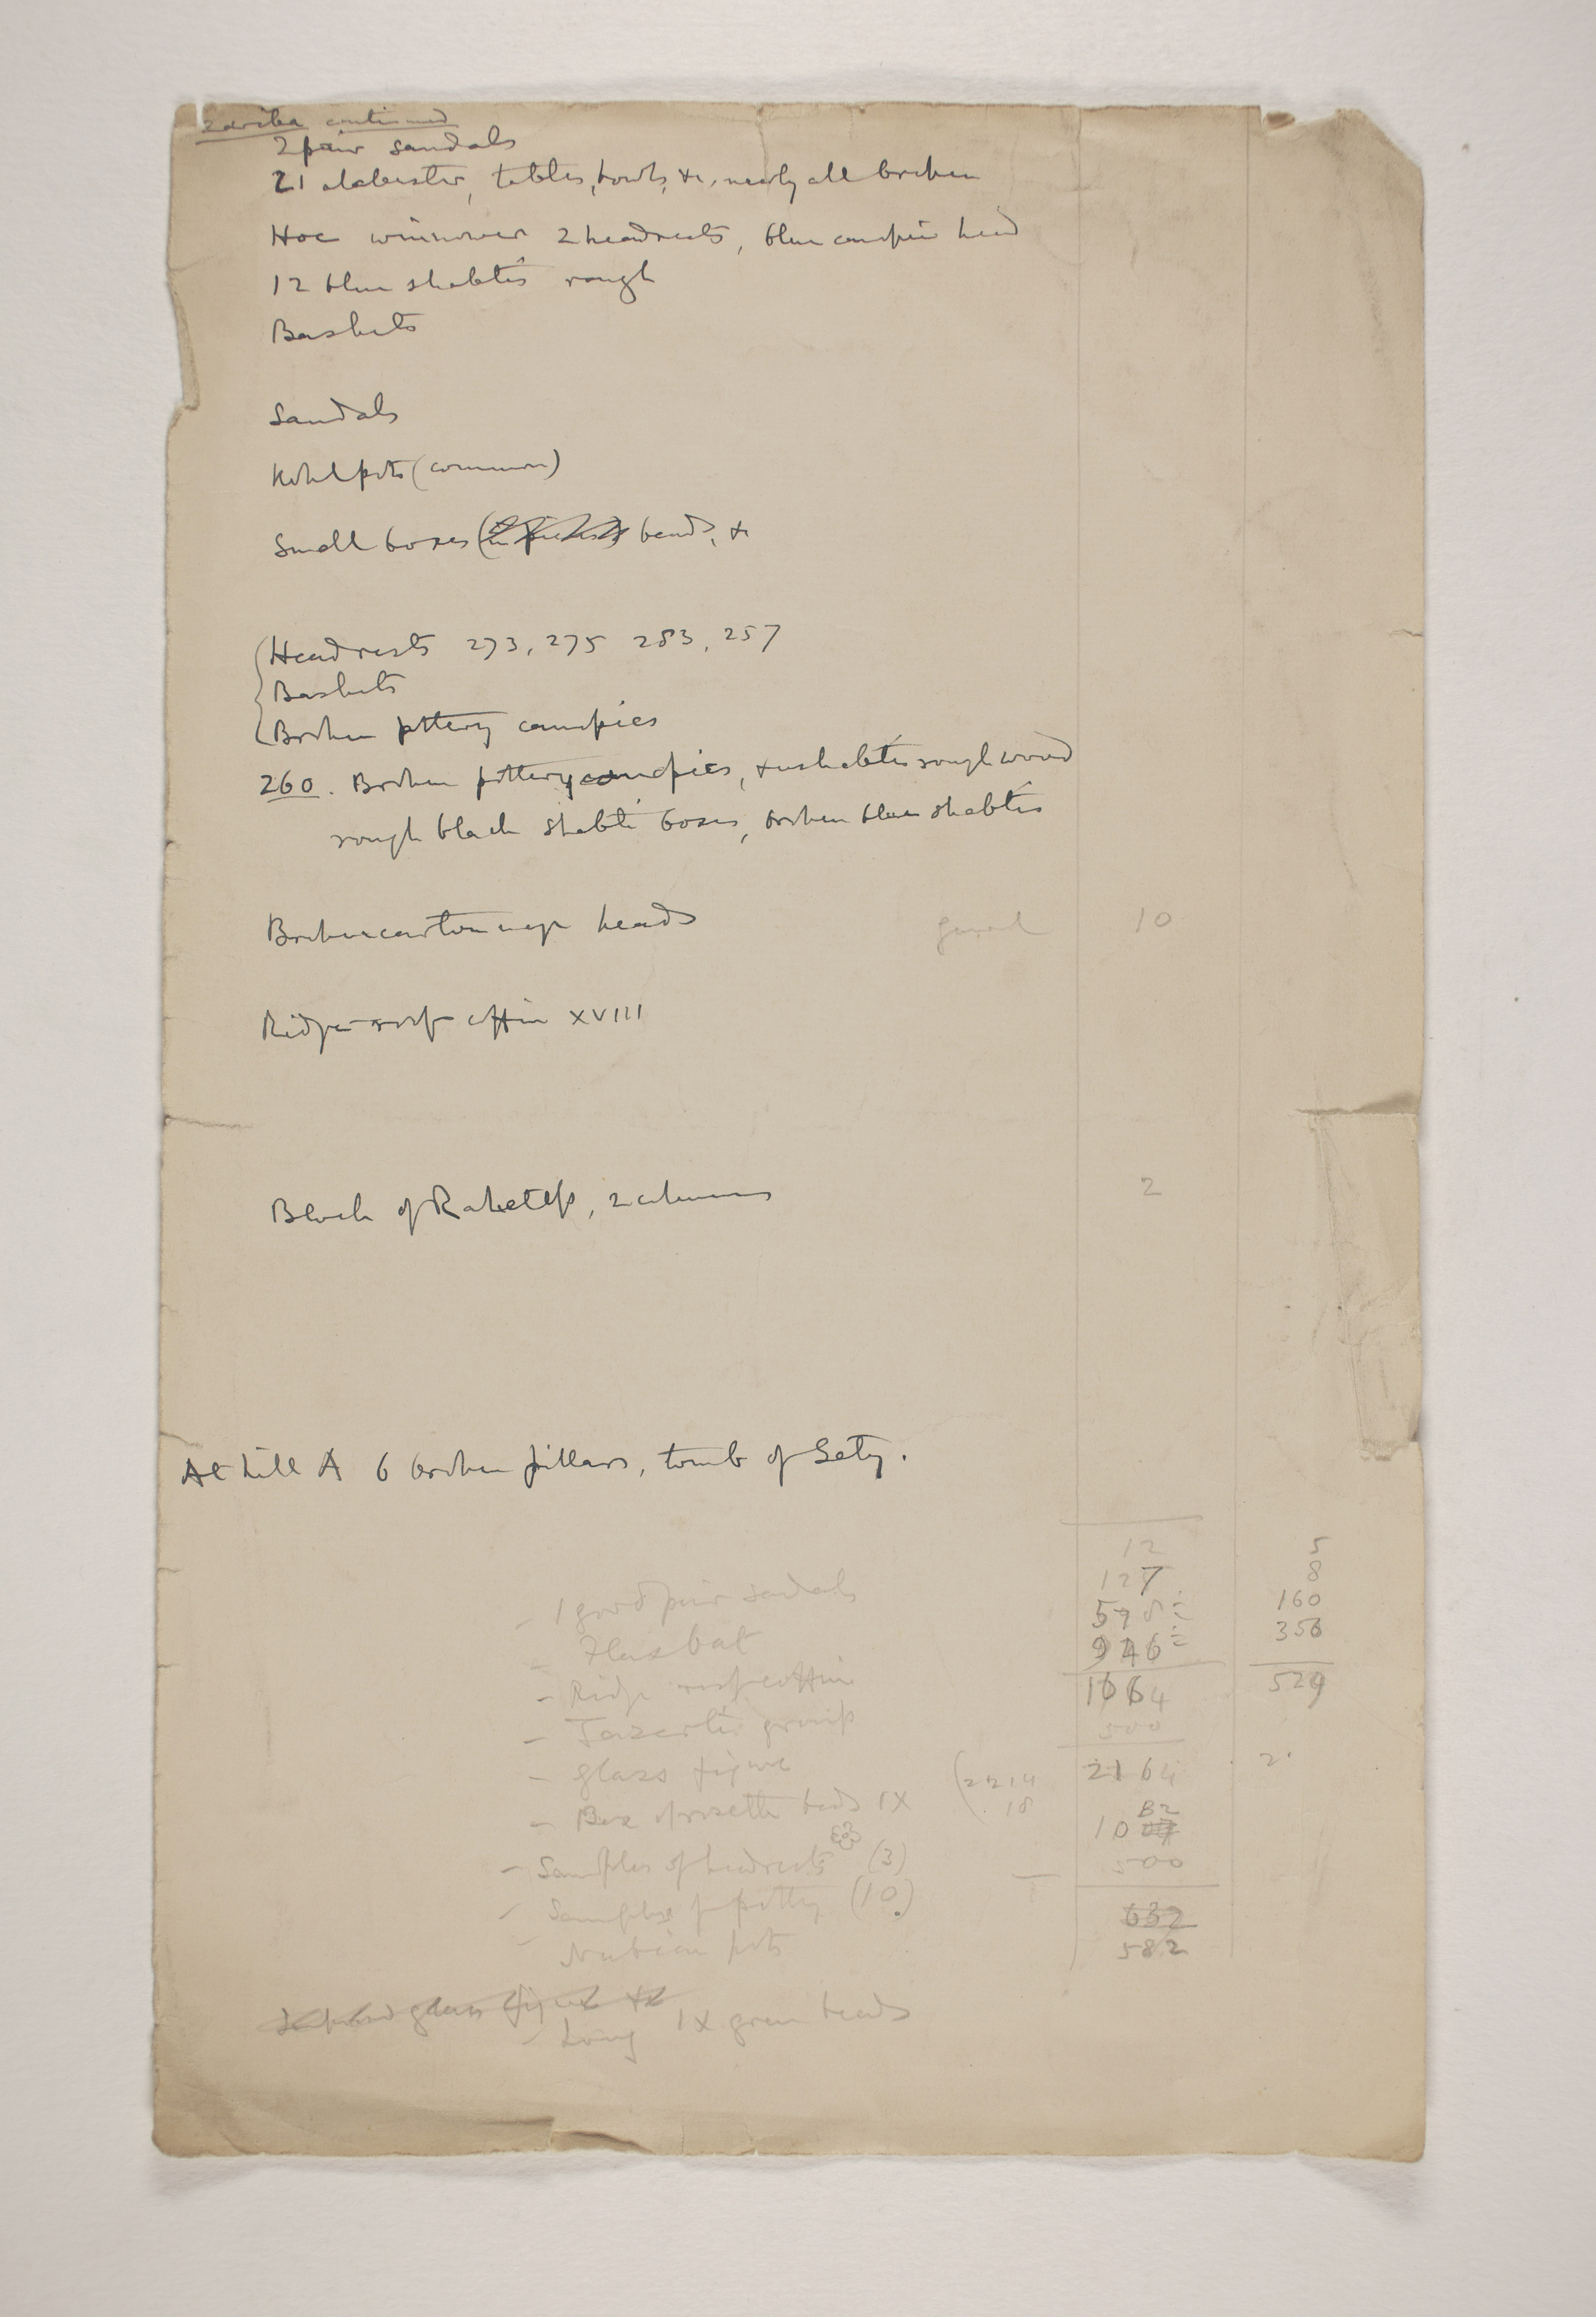 Zariba continued
2 pair sandals
21 alabaster, tables, bowls, &c, nearly all broken
Hoe winnower 2 headrests, blue canopic head
12 blue shabtis rough
Baskets
Sandals
Kohl pots (common)
Small boxes ( beads, &c
Headrests 273, 275 283, 257
Baskets
Broken pottery canopics
260. Broken pottery canopics, & ushabtis rough wood
rough black shabti boxes, broken blue shabtis
Broken cartonnage heads 10
Ridge roof coffin XVIII
Block of Rahetep, 2 columns 2
At hill A 6 broken pillars, tomb of Sety.
12 5
127 8
- 1 good pair sandals 160
Flax bat 946 356
- Ridge roof coffin 1664 529
- group 500
- glass figure 2164 2
- Box of rosette beads IX (2214
18
10 82
- Samples of headrests (3) 500
- Samples of pottery (10) 632
Nubian pots 582
glass figure &c
- Long IX green beads